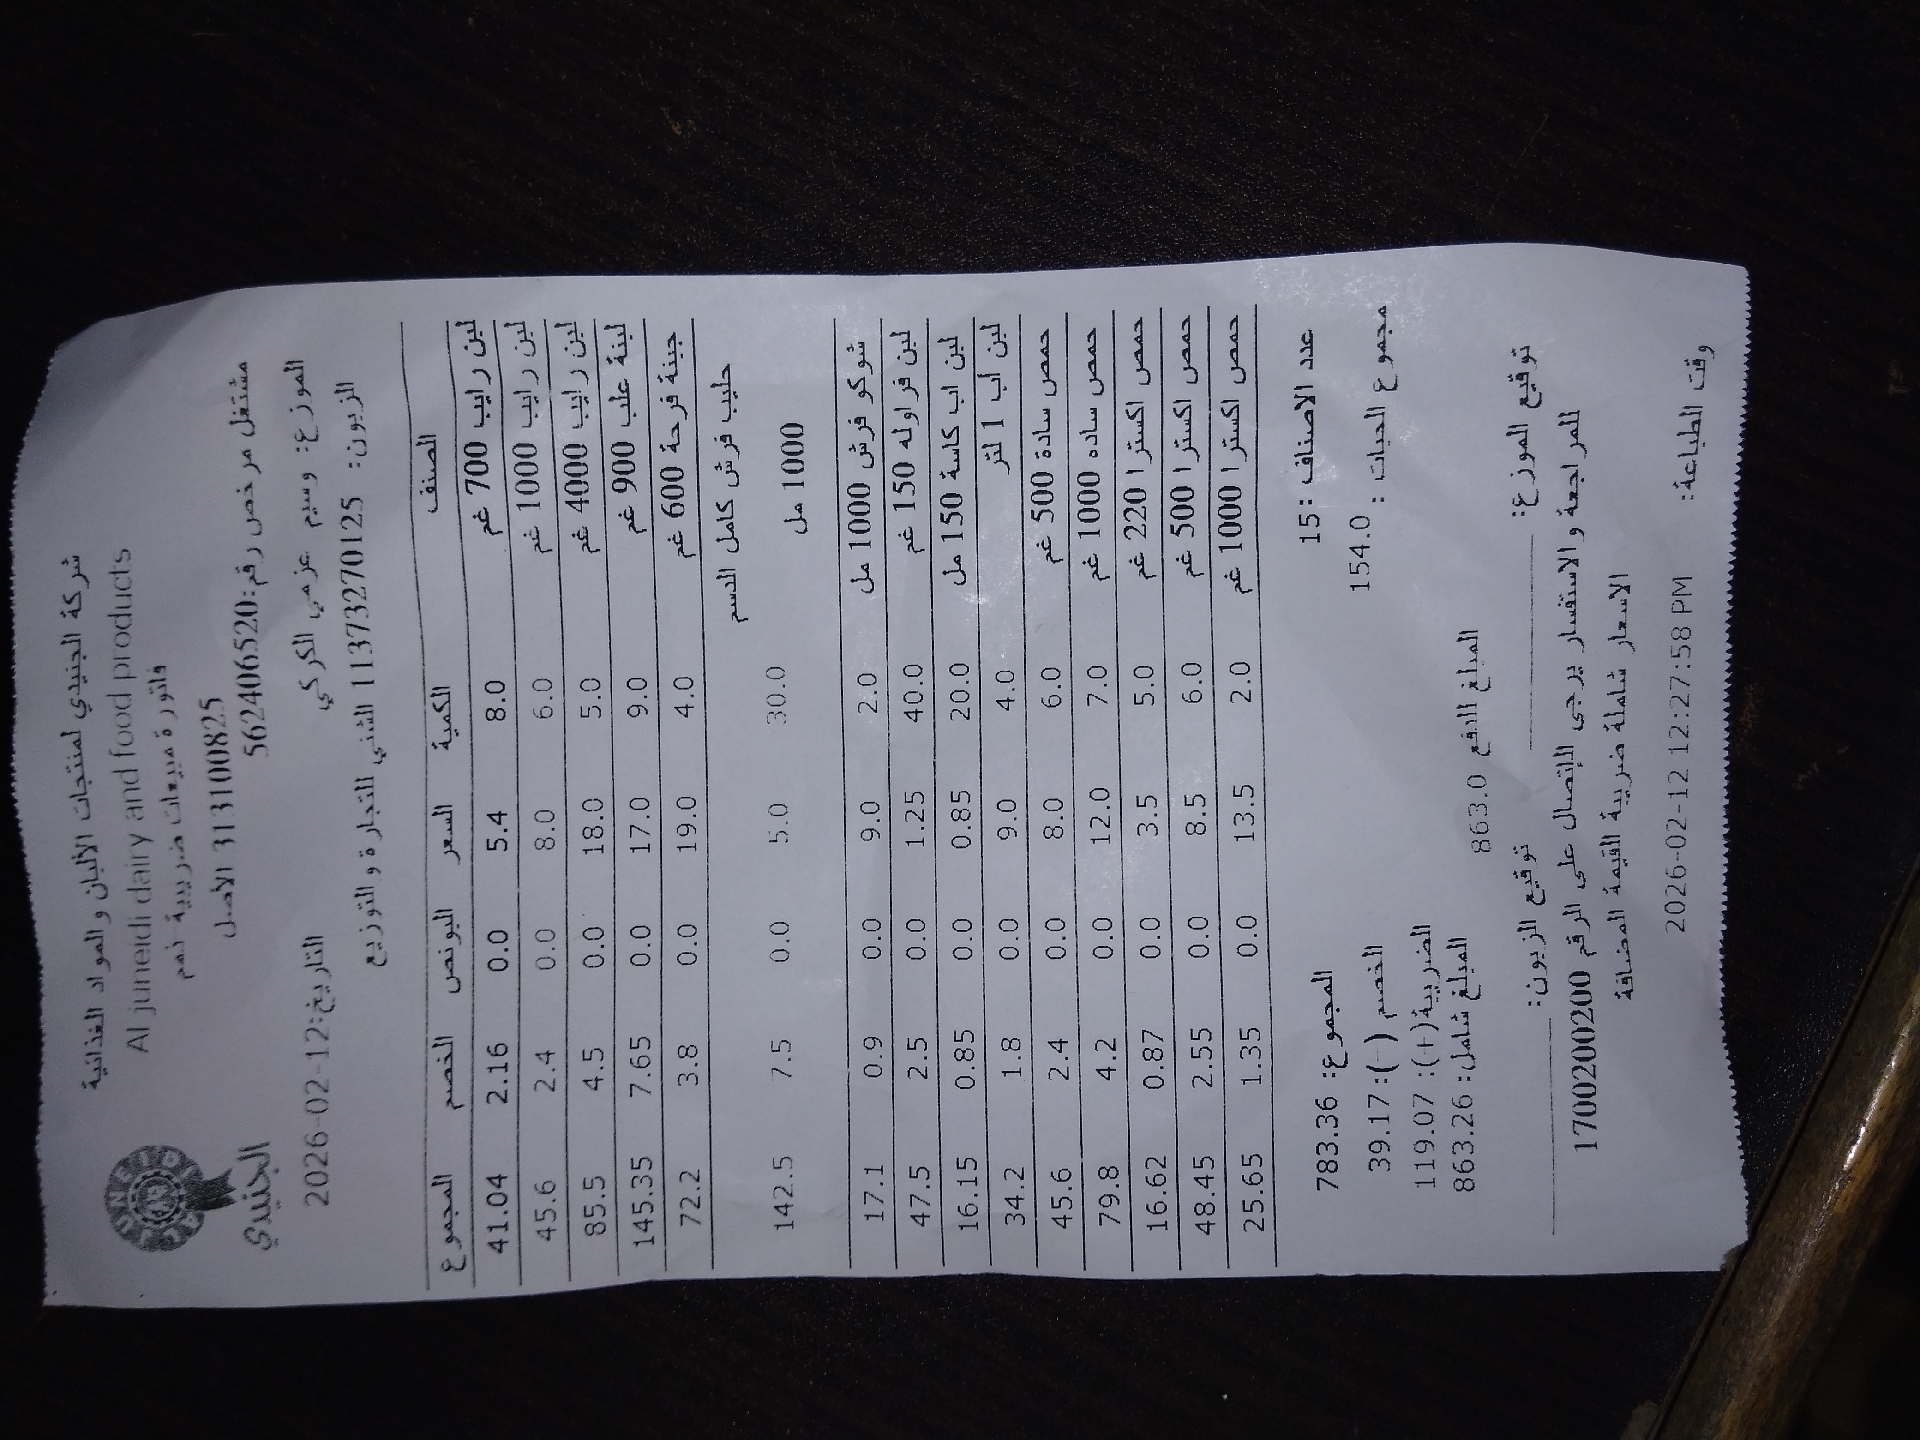 شركة الجنيدي لمنتجات الألبان والمواد الغذائية
Al juneidi dairy and food products
فاتورة مبيعات ضريبية نهم
مشتغل مرخص رقم:562406520
313100825 الأصل
JUNEIDI
الجنيدي
الموزع: وسيم عزمي الكركي
التاريخ:2026-02-12
الزبون: 1137327012​5 الشني للتجارة والتوزيع
الصنف الكمية السعر البونص الخصم المجموع
لبن رايب 700 غم 8.0 5.4 0.0 2.16 41.04
لبن رايب 1000 غم 6.0 8.0 0.0 2.4 45.6
لبن رايب 4000 غم 5.0 18.0 0.0 4.5 85.5
لبنة علب 900 غم 9.0 17.0 0.0 7.65 145.35
جبنة فرحة 600 غم 4.0 19.0 0.0 3.8 72.2
حليب فرش كامل الدسم
1000 مل 30.0 5.0 0.0 7.5 142.5
شوكو فرش 1000 مل 2.0 9.0 0.0 0.9 17.1
لبن فراوله 150 غم 40.0 1.25 0.0 2.5 47.5
لبن اب كاسة 150 مل 20.0 0.85 0.0 0.85 16.15
لبن أب 1 لتر 4.0 9.0 0.0 1.8 34.2
حمص سادة 500 غم 6.0 8.0 0.0 2.4 45.6
حمص ساده 1000 غم 7.0 12.0 0.0 4.2 79.8
حمص اكسترا 220 غم 5.0 3.5 0.0 0.87 16.62
حمص اكسترا 500 غم 6.0 8.5 0.0 2.55 48.45
حمص اكسترا 1000 غم 2.0 13.5 0.0 1.35 25.65
عدد الاصناف :15
المجموع: 783.36
مجموع الحبات : 154.0
الخصم (-): 39.17
الضريبة(+): 119.07
المبلغ شامل: 863.26
المبلغ للدفع 863.0
توقيع الموزع: توقيع الزبون:
للمراجعة والاستفسار يرجى الإتصال على الرقم 1700200200
الاسعار شاملة ضريبة القيمة المضافة
وقت الطباعة: 2026-02-12 12:27:58 PM